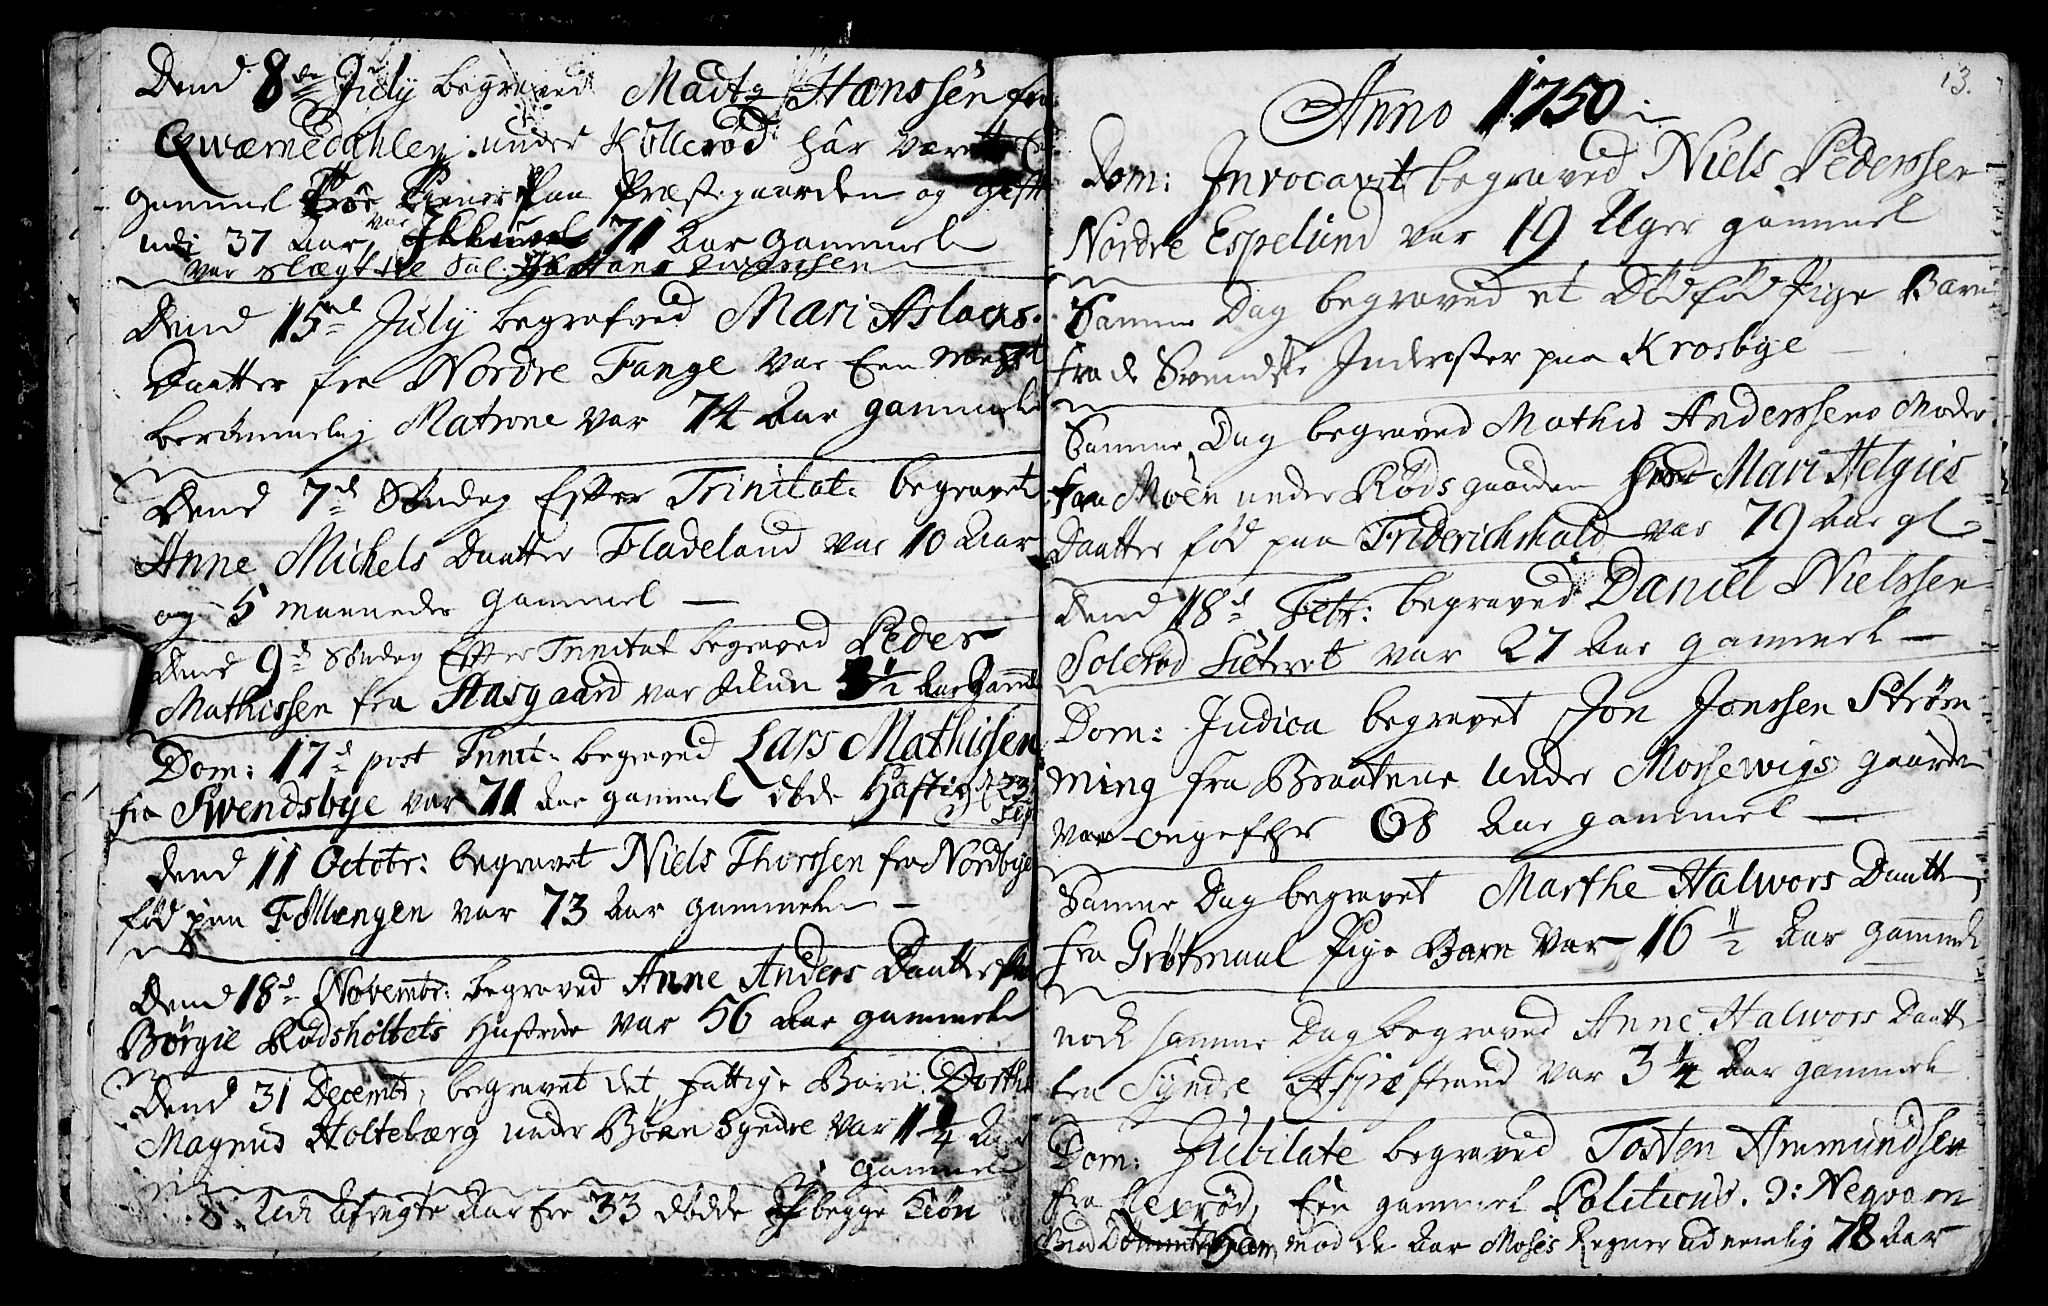 Dend 8de July begraved Madtz Hanssen fra
Qwærnedahlen under Kollerød har været En
gammel Troe Tiener Paa Præstegaarden og gift
udi 37 Aar, var 71 Aar gammel
var slægt til Sal. Hr Hans Iwersen
Dend 15de July begrafved Mari Aslacks
Daatter fra Nordre Tange var Een meget
berømmelig Matrone var 74 Aar gammel
Dend 7de Søndag Efter Trinitat: begravet
Anne Michels Daatter Fladeland var 10 Aar
og 5 maaneder gammel —
Dend 9de Søndag Efter Trinitat begraved Peder
Mathissen fra Aasgaard var 3 1/2 Aar Gaml
Dom: 17de post Trinit: begraved Lars Mathissen
fra Swendsbye var 71 Aar gammel døde Hastig d. 23 Sep
Dend 11 Octobr: begravet Niels Thorssen fra Nordbye
fød paa Follængen var 73 Aar gammel —
Dend 18de Novembr: begraved Anne Anders Daatter fra
Børgie Rødsholtets Hustrue var 56 Aar gammel
Dend 31 Decembr, begravet det fattige Barn Dorthe
Magnus Holtebærg under Bøen Syndre var 1 1/4 Aar
gammel
Udi Afvigte Aar Ere 33 Døde af begge Kiøn
13.
Anno 1750
Dom: Invocavit begraved Niels Pederssen
Nordre Espelund var 19 Uger gammel
Samme Dag begraved et Dødfød Pige Barn
fra de Svendske Inderster paa Krosbye —
Samme Dag begraved Mathis Anderssens Moder
fra Moen under Røds gaarden Mari Helgies
Daatter fød paa Friderichshald var 79 Aar gl
Dend 18de Febr: begraved Daniel Nielssen
Solerød var 27 Aar gammel —
Dom: Judica begravet Jon Jonssen Strøm
ming fra Braatene under Mossewigs gaarden
var ongefehr 68 Aar gammel —
Samme Dag begravet Marthe Halwors Daatter
fra Grøtmaal Pige Barn var 16 1/2 Aar gammel
nock samme Dag begraved Anne Halwors Daatter
fra Syndre Aspestrand var 3 1/4 Aar gammel
Dom: Jubilate begraved Tosten Ammundsen
fra Lexrød, Een gammel Politicus. ɔ: Neqvam
mod de Aar Moses Regner ud nemlig 78 Aar